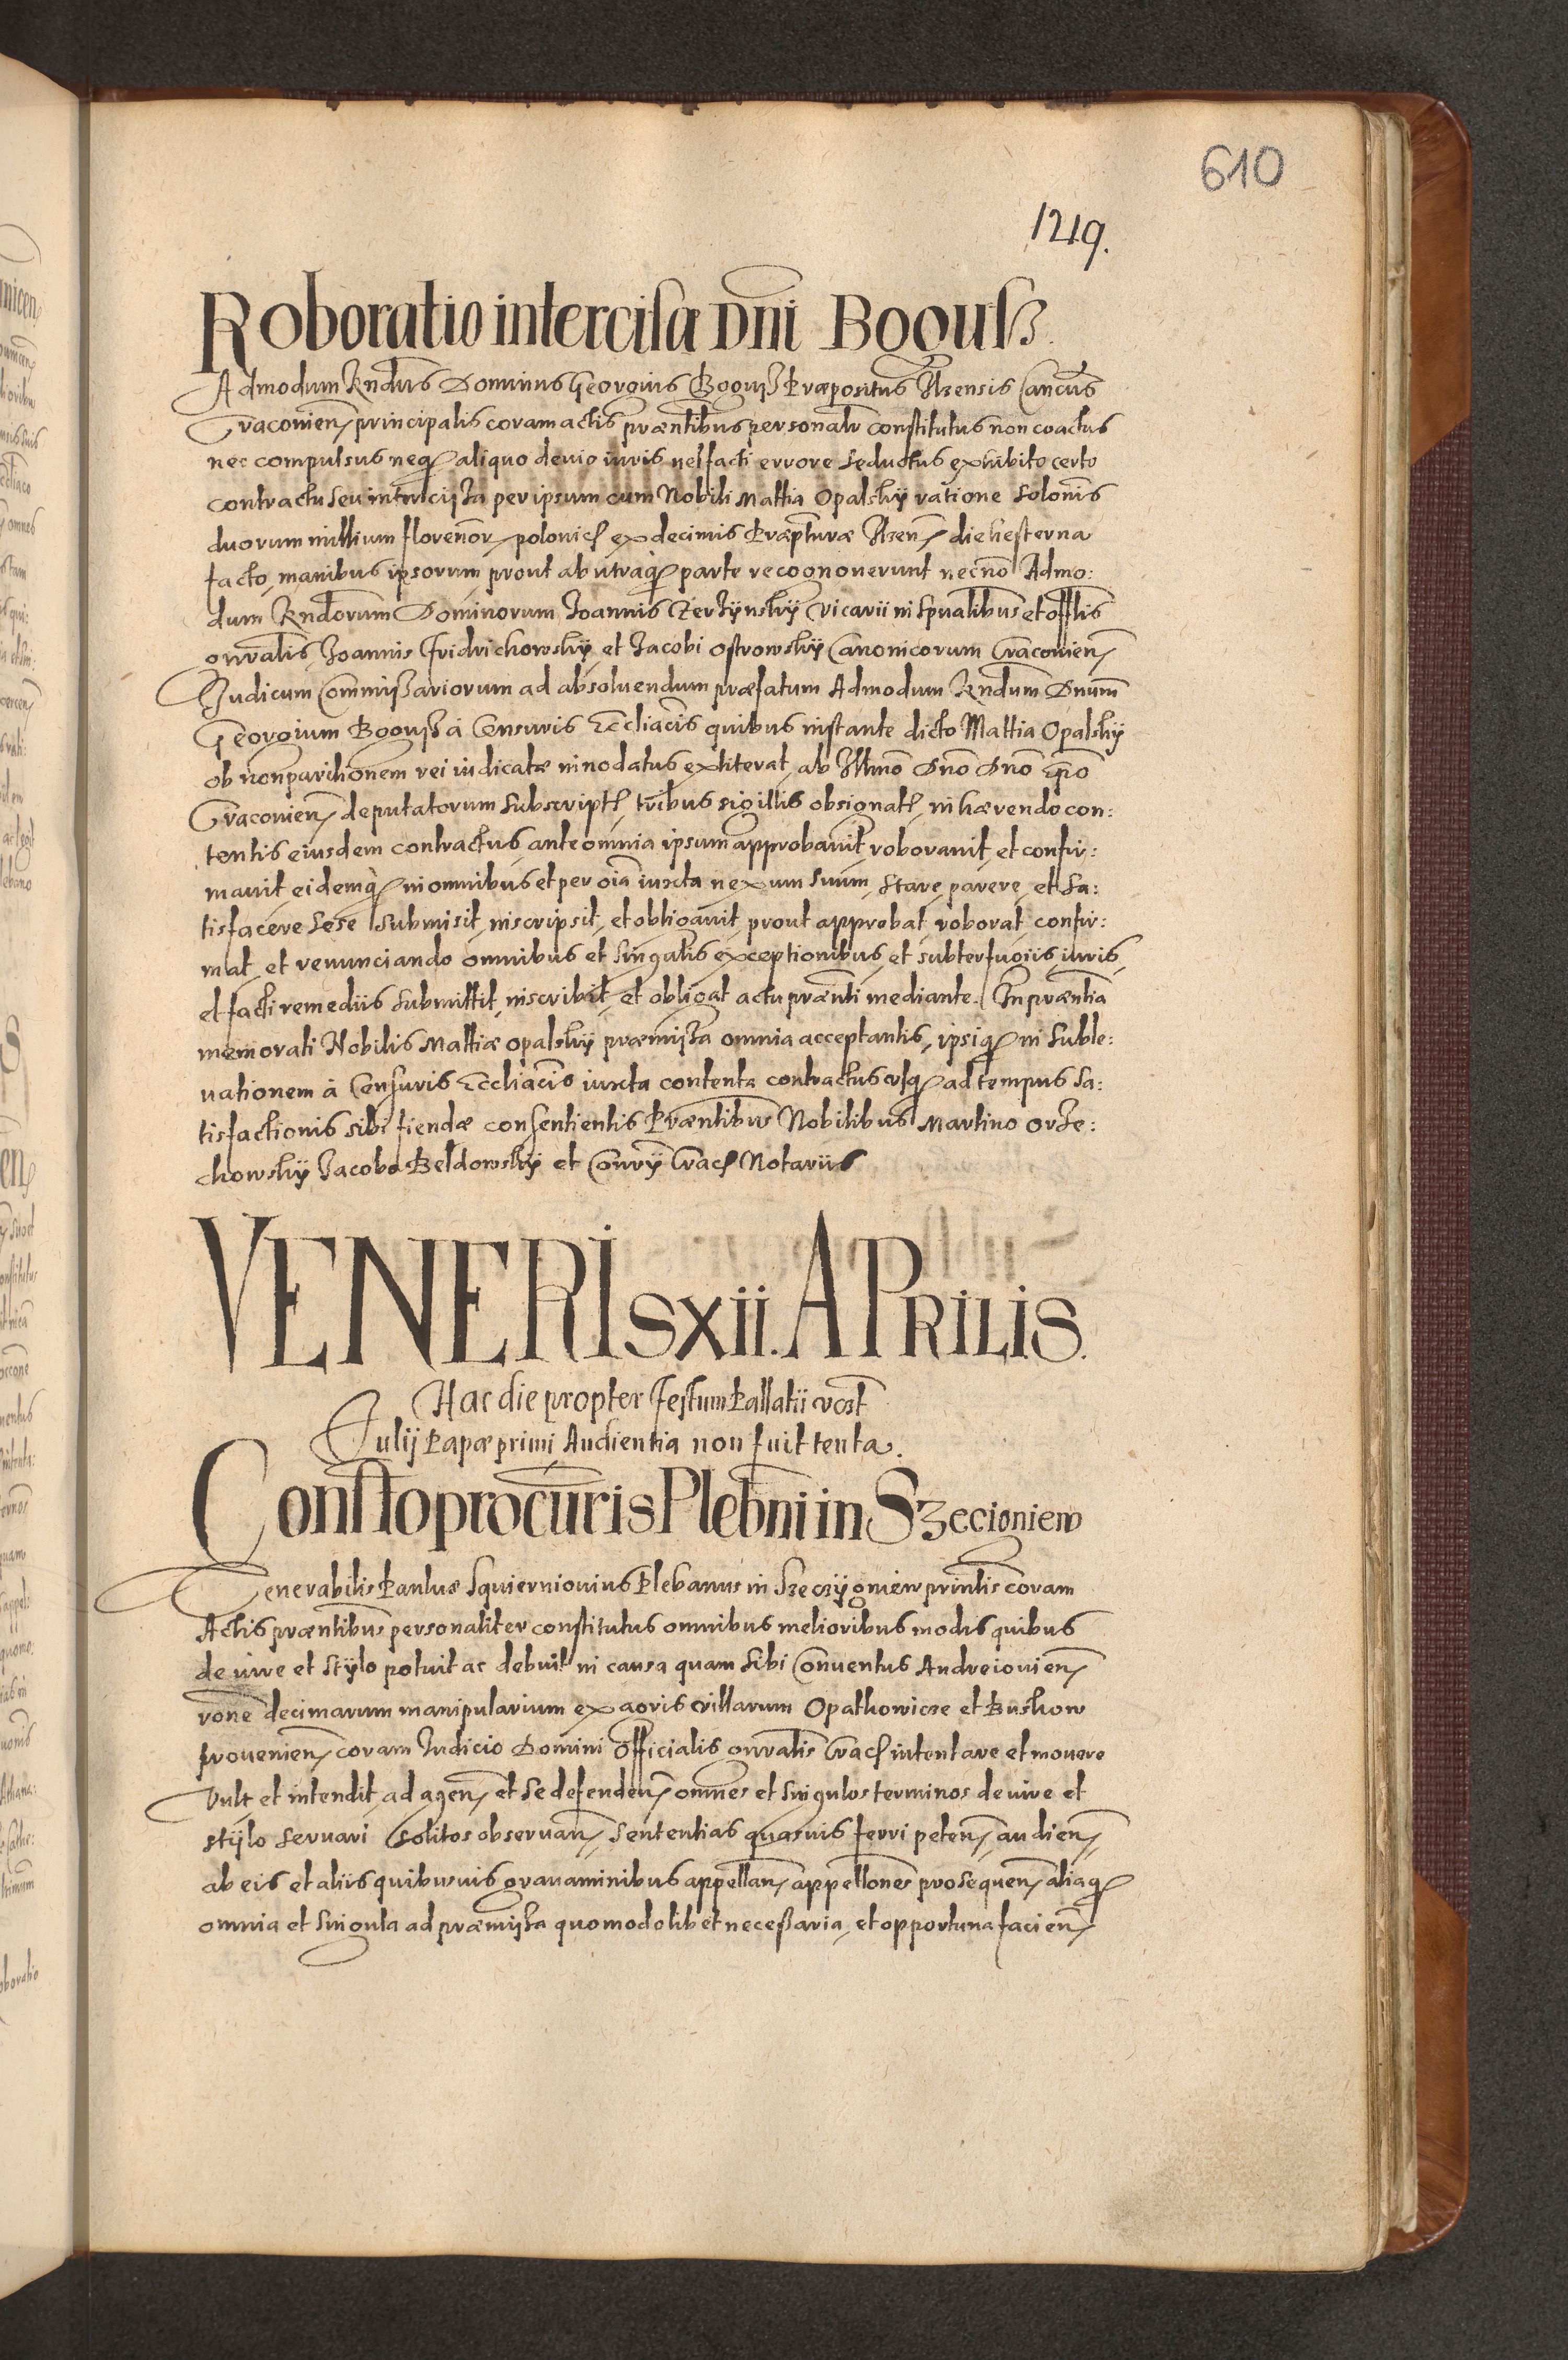 610
1219.
Roboratio intercisæ Dni Boguss.
Admodum Rndus Dominus Georgius Boguss Præpositus Ilzensis Cancus
Cracovien principalis coram actis præntibus personalr constitutus non coactus
nec compulsus neq aliquo devio iuris vel facti errore seductus exhibito certo
contractu seu intercissa per ipsum cum Nobili Mattia Opalsky ratione solonis
duorum millium florenor polonicl ex decimis Præpturæ Ilzen die hesterna
facto, manibus ipsorum prout ab utraq parte recognoverunt necno Admo:
dum Rndorum Dominorum Joannis Vicarii in Spualibus et offlis
gnralis, Joannis Fridrichowsky, et Jacobi Ostrowsky Canonicorum Cracovien
Judicum Commissariorum ad absoluendum præfatum Admodum Rndum Dnum
Georgium Boguss á Censuris Eccliacis quibus instante dicto Mattia Opalsky
ob non paritionem rei iudicatæ innodatus extiterat, ab Illmo Dno Dno Epo
Cracovien deputatorum subscriptl, tribus sigillis obsignatl, inhærendo con:
tentis eiusdem contractus, ante omnia ipsum approbauit, roborauit, et confir:
mauit, eidemq in omnibus et per oia iuxta nexum suum, stare, parere, et sa:
tisfacere sese submisit, inscripsit, et obligauit, prout approbat, roborat, confir:
mat, et renunciando omnibus et singulis exceptionibus, et subterfugiis, iuris,
et facti remediis submittit, inscribit, et obligat actu prænti mediante. In præntia
memorati Nobilis Mattiæ Opalsky præmissa omnia acceptantis, ipsiq in suble:
uationem á Censuris Eccliacis iuxta contenta contractus usq ad tempus sa:
tisfactionis sibi fiendæ consentientis Præntibus Nobilibus Martino Orze:
chowsky Jacobo Beldowsky et Conry Cracl Notariis
VENERIS XII. APRILIS.
Hac die propter Festum Pallatii vost
Julij Papæ primi Audientia non fuit tenta.
Constto procuris Plebni in Szecigniew
Venerabilis Paulus Squiernionius Plebanus in Szeczygniew prinlis coram
Actis præntibus personaliter constitutus omnibus melioribus modis quibus
de iure et stylo potuit ac debuit in causa quam sibi Conventus Andreiouien
rone decimarum manipularium ex agris villarum Opathowicze et Buskow
prouenien coram Iudicio Domini Officialis gnralis Cracl intentare et mouere
Vult et intendit, ad agen et se defenden omnes et singulos terminos de iure et
stylo seruari solitos obseruan, sententias quasuis ferri peten, audien
ab eis et aliis quibusuis grauaminibus appellan, appellones prosequen, aliaq
omnia et singula ad præmissa quomodolibet necessaria, et opportuna facien